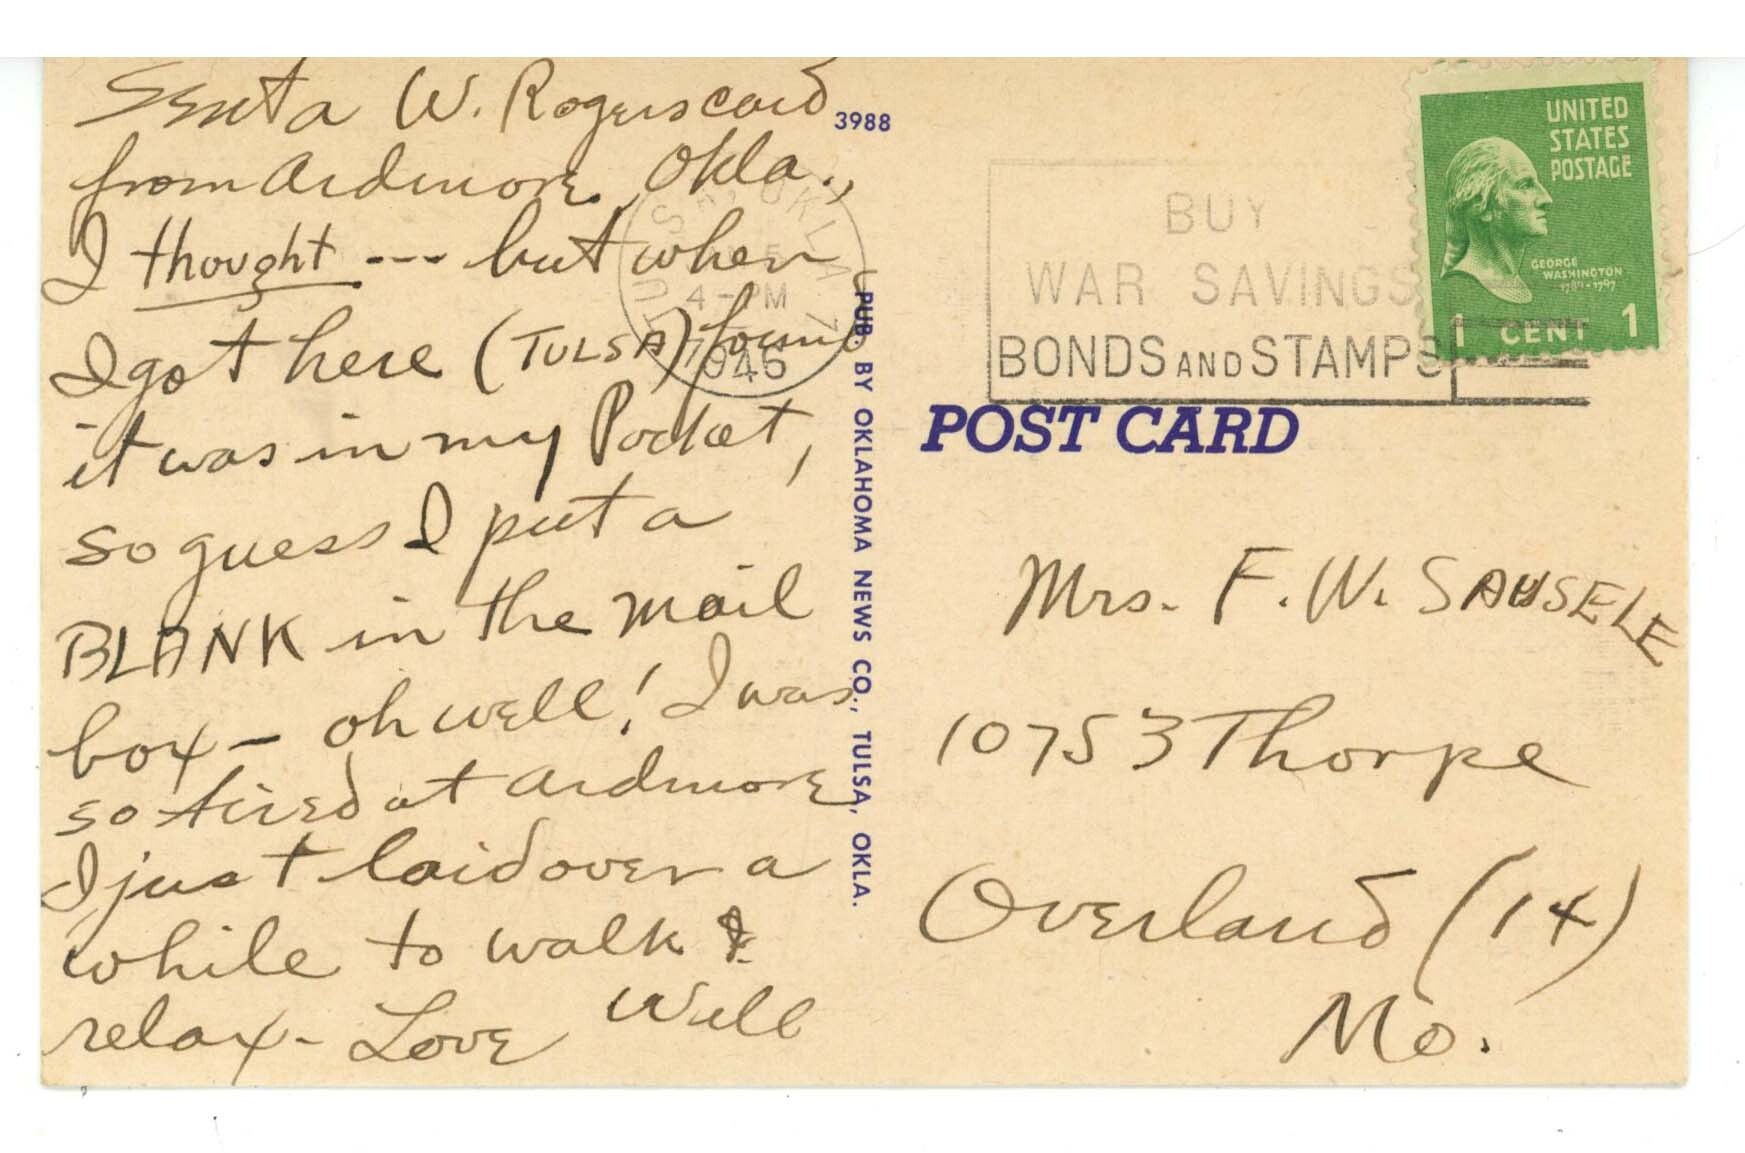 Sent a W. Rogers card
from Ardmore, Okla.,
I thought --- but when
I got here (TULSA) found
it was in my Pocket,
so guess I put a
BLANK in the mail
box - oh well! I was
so tired at Ardmore
I just laid over a
while to walk &
relax - Love Will
3988
PUB. BY OKLAHOMA NEWS CO., TULSA, OKLA.
TULSA OKLA
4-PM
1946
BUY
WAR SAVINGS
BONDS AND STAMPS
UNITED
STATES
POSTAGE
GEORGE
WASHINGTON
1789-1797
1 CENT 1
POST CARD
Mrs. F. W. SAUSELE
10753 Thorpe
Overland (14)
Mo.